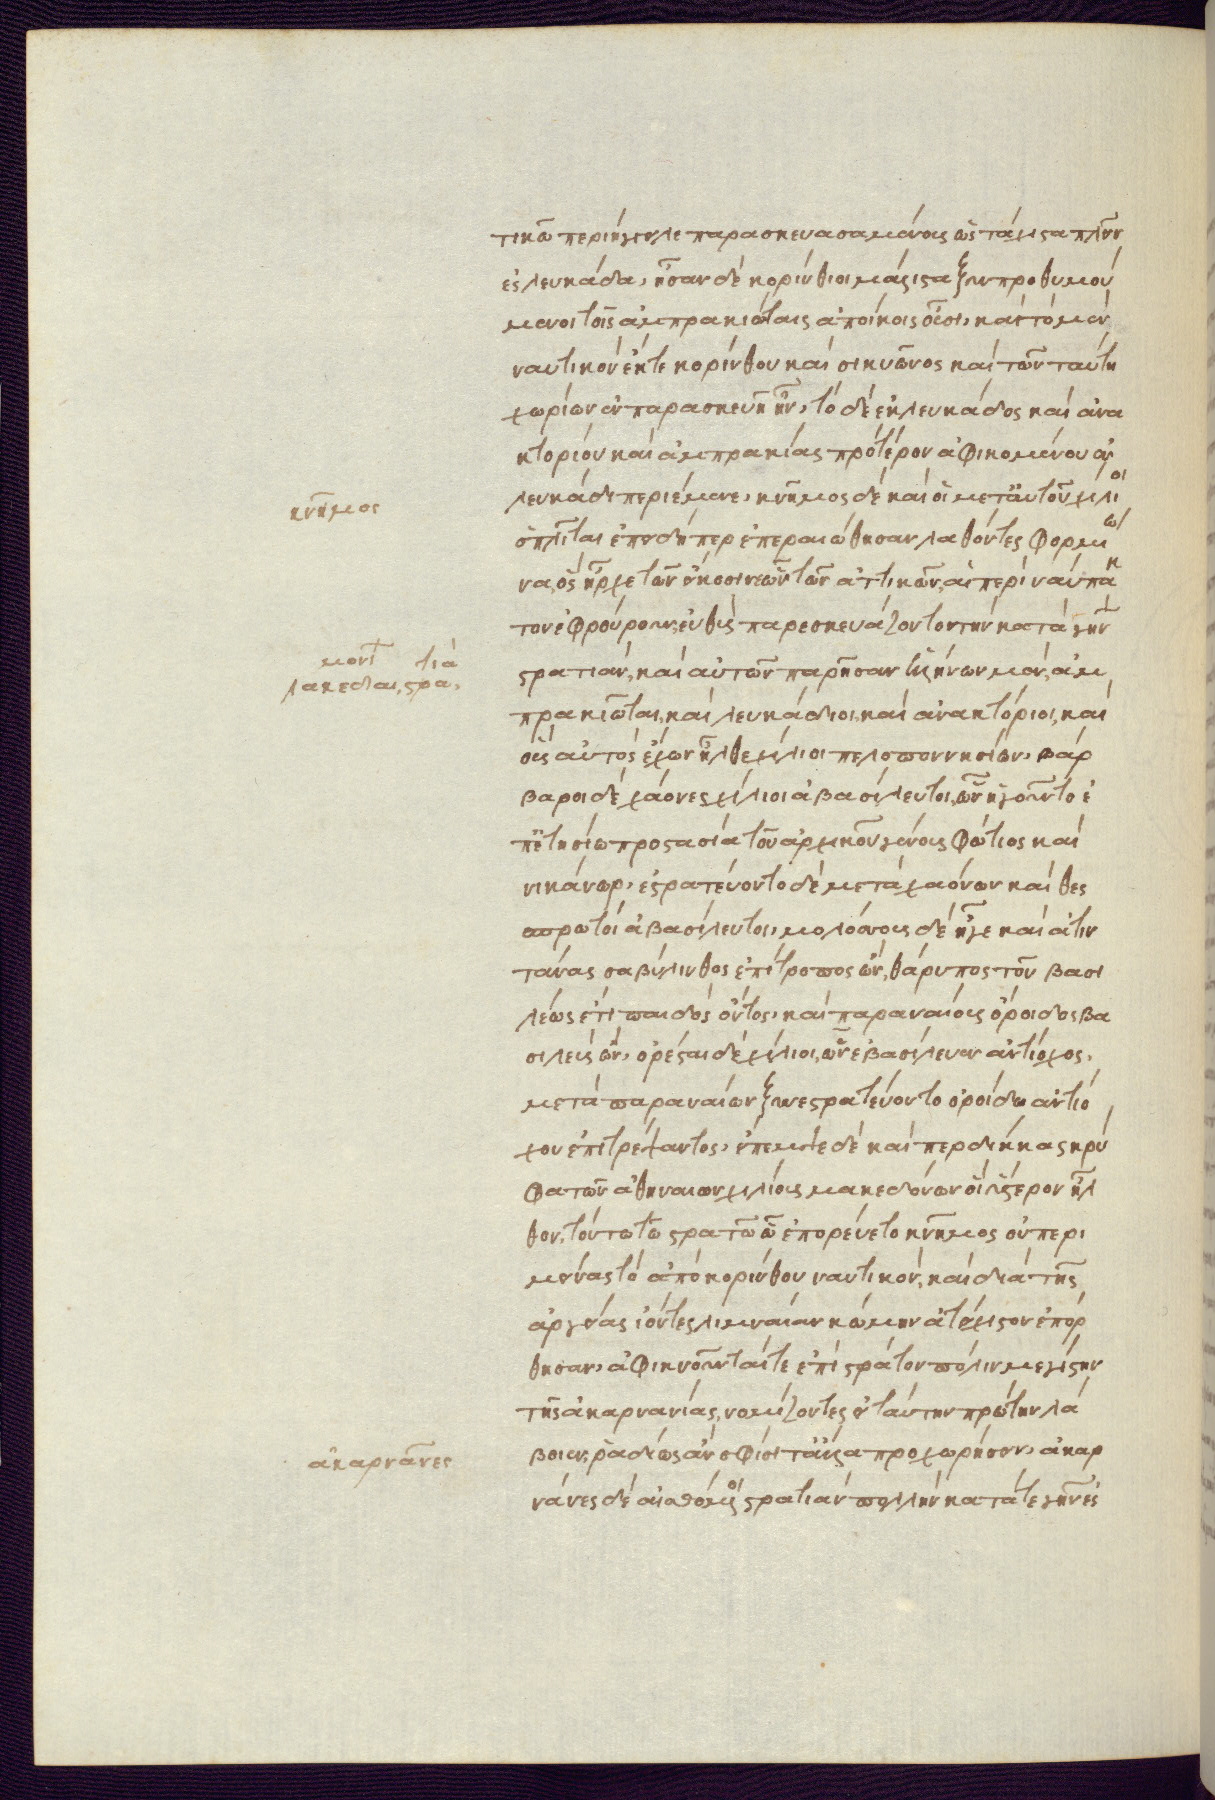 τικῶ περιήγγειλε παρασκευασαμένοις ὡς τάχιστα πλεῖν
ἐς λευκάδα, ἦσαν δὲ κορίνθιοι μάλιστα ξυμπροθυμού
μενοι τοῖς ἀμπρακιώταις ἀποίκοις οὖσι, καὶ τὸ μὲν
ναυτικὸν ἔκτε κορίνθου καὶ σικυῶνος καὶ τῶν ταύτη
χωρίων ἐν παρασκευῆ ἦν, τὸ δὲ ἐκ λευκάδος καὶ ἀνα
κτορίου καὶ ἀμπρακίας πρότερον ἀφικομένου ἐν
κνῆμος
λευκάδι περιέμενε, κνῆμος δὲ καὶ οἱ μετ' αὐτοῦ χίλιοι
ὁπλῖται ἐπειδήπερ ἐπεραιώθησαν λαθόντες φορμίω
να, ὃς ἦρχε τῶν εἴκοσι νεῶν τῶν ἀττικῶν, αἳ περὶ ναύπακ
τον ἐφρούρουν, εὐθὺς παρεσκευάζοντο τὴν κατὰ γῆν
λακεδαιμονί στρατιά
στρατιάν, καὶ αὐτῶν παρῆσαν ἑλλήνων μὲν, ἀμ
πρακιῶται, καὶ λευκάδιοι, καὶ ἀνακτόριοι, καὶ
οὓς αὐτὸς ἔχων ἦλθε χίλιοι πελοποννησίων, βάρ
βαροι δὲ χάονες χίλιοι ἀβασίλευτοι, ὧν ἡγοῦντο ἐ
π' ἐτησίω προστασία τοῦ ἀρχικοῦ γένους φώτιος καὶ
νικάνωρ, ἐστρατεύοντο δὲ μετὰ χαόνων καὶ θες
πρωτοὶ ἀβασίλευτοι, μολοσσοὺς δὲ ἦγε καὶ ἀτιν
τάνας σαβύλινθος ἐπίτροπος ὢν, θάρυπος τοῦ βασι
λέως ἔτι παιδὸς ὄντος, καὶ παραυαίους ὄροιδος βα
σιλεὺς ὢν, ὀρέσται δὲ χίλιοι, ὧν ἐβασίλευεν ἀντίοχος,
μετὰ παραυαίων ξυνεστρατεύοντο ὀροίδω ἀντιό
χου ἐπιτρέψαντος, ἔπεμψε δὲ καὶ περδίκκας κρύ
φα τῶν ἀθηναίων χιλίους μακεδόνων οἳ ὕστερον ἦλ
θον, τούτω τῶ στρατῶ ἐπορεύετο κνῆμος οὐ περι
μείνας τὸ ἀπὸ κορίνθου ναυτικόν, καὶ διὰ τῆς
ἀργείας ἰόντες λιμναίαν κώμην ἀτείχιστον ἐπόρ
θησαν, ἀφικνοῦνταί τε ἐπὶ στράτον πόλιν μεγίστην
τῆς ἀκαρνανίας, νομίζοντες εἰ ταύτην πρώτην λά
ἀκαρνᾶνες
βοιεν, ῥαδίως ἂν σφίσι τἄλλα προχωρήσειν, ἀκαρ
νᾶνες δὲ αἰσθόμενοι στρατιὰν πολλὴν κατά τε γῆν ἐσ